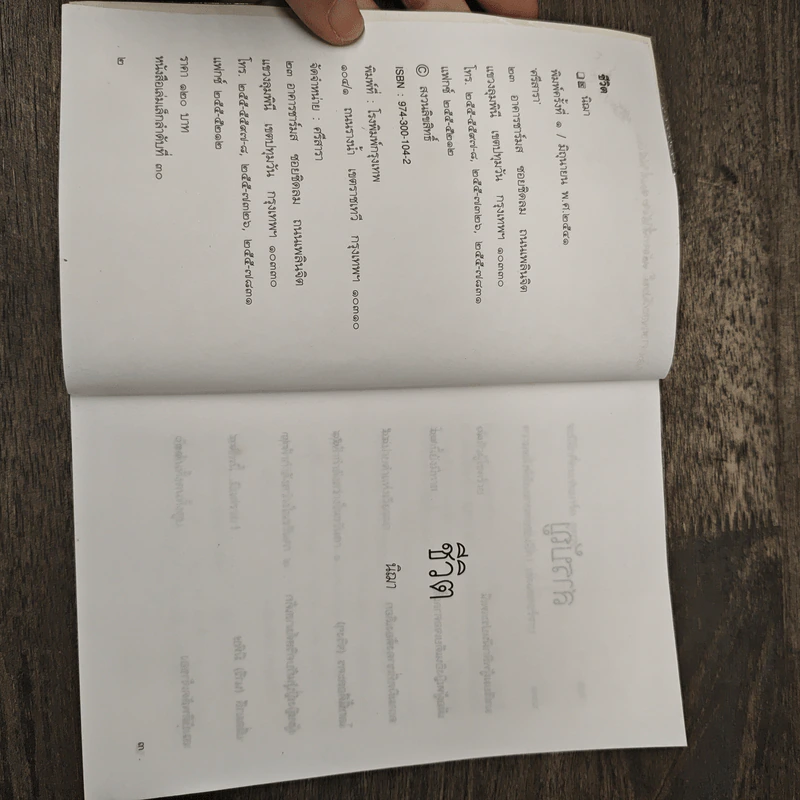 ชีวิต
นิฌา
พิมพ์ครั้งที่ ๑ / มิถุนายน พ.ศ.๒๕๔๑
ศรีสารา
๒๓ อาคารชาร์มส ซอยชิดลม ถนนเพลินจิต
แขวงลุมพินี เขตปทุมวัน กรุงเทพฯ ๑๐๓๓๐
โทร. ๒๕๕-๕๕๙๗-๘, ๒๕๕-๗๓๒๖, ๒๕๕-๗๘๓๑
แฟกซ์ ๒๕๕-๕๒๑๒
© สงวนลิขสิทธิ์
ISBN : 974-300-104-2
พิมพ์ที่ : โรงพิมพ์กรุงเทพ
๑๐๔/๑ ถนนรางน้ำ เขตราชเทวี กรุงเทพฯ ๑๐๓๑๐
จัดจำหน่าย : ศรีสารา
๒๓ อาคารชาร์มส ซอยชิดลม ถนนเพลินจิต
แขวงลุมพินี เขตปทุมวัน กรุงเทพฯ ๑๐๓๓๐
โทร. ๒๕๕-๕๕๙๗-๘, ๒๕๕-๗๓๒๖, ๒๕๕-๗๘๓๑
แฟกซ์ ๒๕๕-๕๒๑๒
ราคา ๑๒๐ บาท
หนังสือเล่มเล็กลำดับที่ ๓๐
๒
ชีวิต
นิฌา
๓